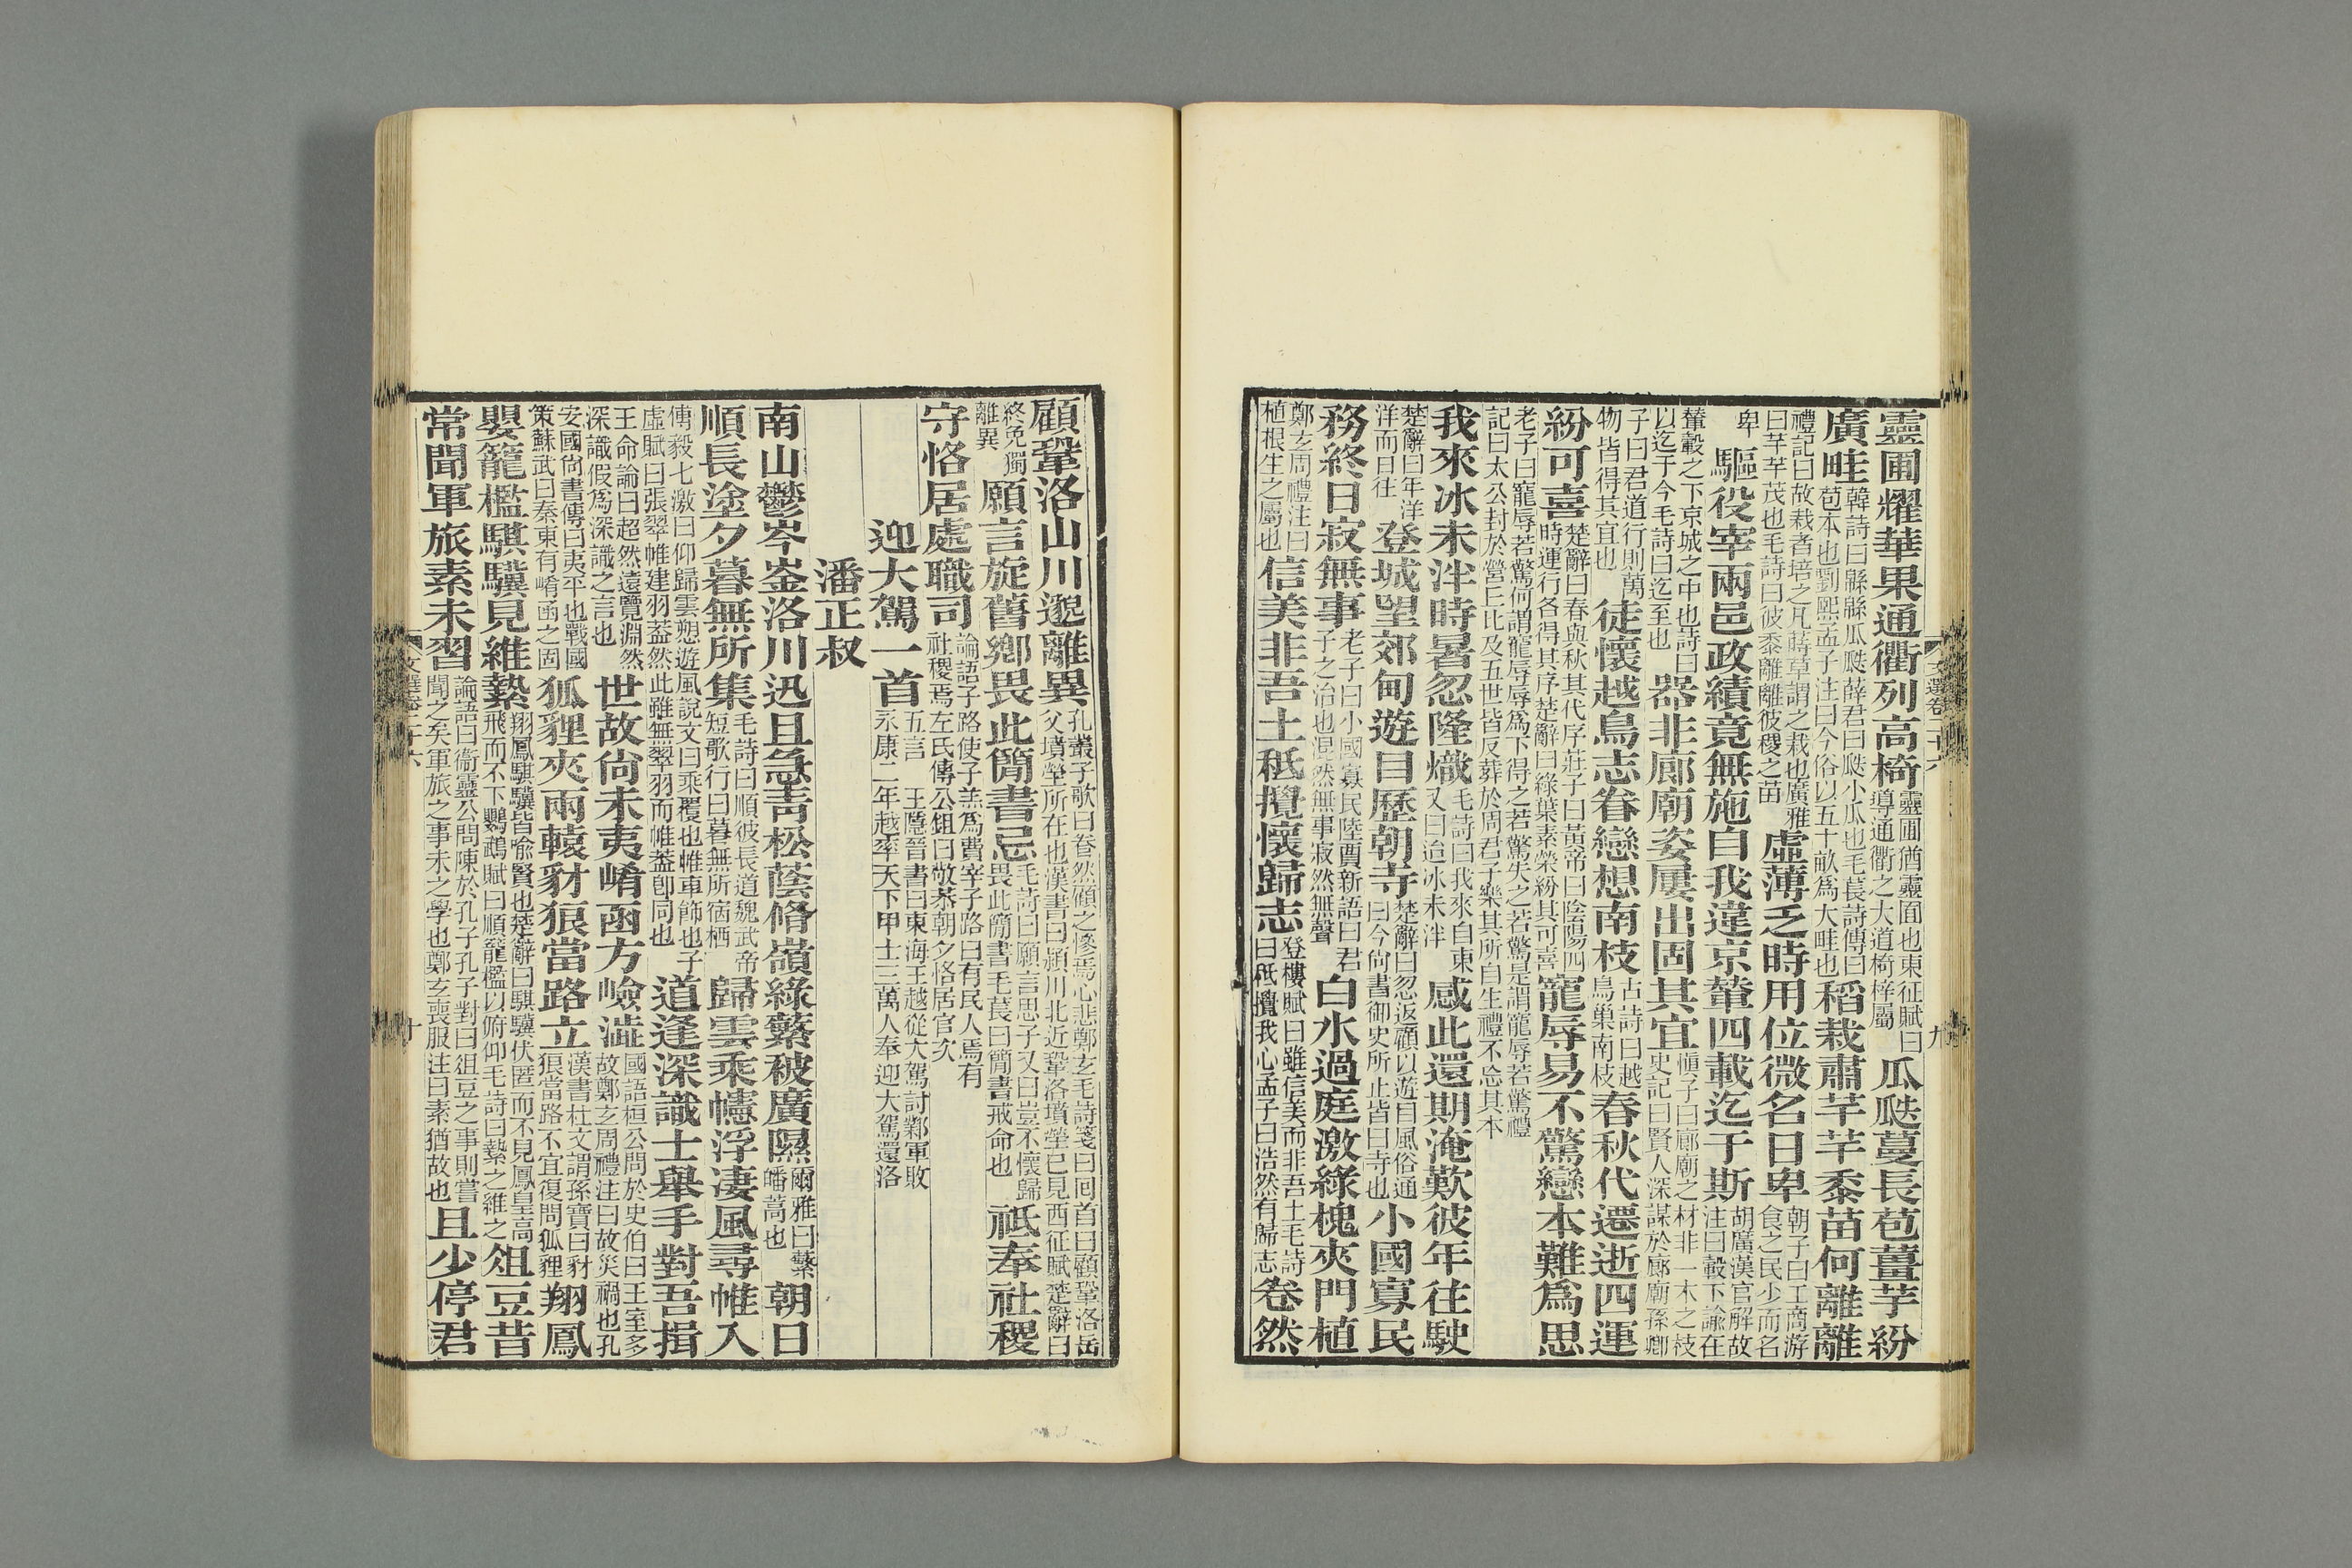 靈圃耀華果通衢列高椅靈圃猶靈囿也東征賦曰導通衢之大道椅梓屬瓜瓞蔓長苞薑芋紛
廣畦韓詩曰緜緜瓜瓞薛君曰瓞小瓜也毛萇詩傳曰苞本也劉熙孟子注曰今俗以五十畝爲大畦也稻栽肅芊芊黍苗何離離
禮記曰故栽者培之凡蒔草謂之栽也廣雅曰芊芊茂也毛詩曰彼黍離離彼稷之苗虛薄乏時用位微名日卑朝子曰工商游食之民少而名
卑驅役宰兩邑政績竟無施自我違京輦四載迄于斯胡廣漢官解故注曰轂下諭在
輦轂之下京城之中也詩曰以迄于今毛詩曰迄至也器非廊廟姿屢出固其宜愼子曰廊廟之材非一木之枝史記曰賢人深謀於廊廟孫卿
子曰君道行則萬物皆得其宜也徒懷越鳥志眷戀想南枝古詩曰越鳥巢南枝春秋代遷逝四運
紛可喜楚辭曰春與秋其代序莊子曰黃帝曰陰陽四時運行各得其序楚辭曰綠葉素榮紛其可喜寵辱易不驚戀本難爲思
老子曰寵辱若驚何謂寵辱辱爲下得之若驚失之若驚是謂寵辱若驚禮記曰太公封於營丘比及五世皆反葬於周君子樂其所自生禮不忘其本
我來冰未泮時暑忽隆熾毛詩曰我來自東又曰迨冰未泮感此還期淹歎彼年往駛
楚辭曰年洋洋而日往登城望郊甸遊目歷朝寺楚辭曰忽返顧以遊目風俗通曰今尙書御史所止皆曰寺也小國寡民
務終日寂無事老子曰小國寡民陸賈新語曰君子之治也混然無事寂然無聲白水過庭激綠槐夾門植
鄭玄周禮注曰植根生之屬也信美非吾土秪攪懷歸志登樓賦曰雖信美而非吾土毛詩曰秪攪我心孟子曰浩然有歸志卷然
文選卷二十六
九
顧鞏洛山川邈離異孔叢子歌曰眷然顧之慘焉心悲鄭玄毛詩箋曰回首曰顧鞏洛岳父墳塋所在也漢書曰潁川北近鞏洛墳塋已見西征賦楚辭曰
終免獨離異願言旋舊鄕畏此簡書忌毛詩曰願言思子又曰豈不懷歸畏此簡書毛萇曰簡書戒命也祗奉社稷
守恪居處職司論語子路使子羔爲費宰子路曰有民人焉有社稷焉左氏傳公鉏曰敬恭朝夕恪居官次
迎大駕一首五言王隱晉書曰東海王越從大駕討鄴軍敗永康二年越率天下甲士三萬人奉迎大駕還洛
潘正叔
南山鬱岑崟洛川迅且急靑松蔭脩嶺綠蘩被廣隰爾雅曰蘩皤蒿也朝日
順長塗夕暮無所集毛詩曰順彼長道魏武帝短歌行曰暮無所宿栖歸雲乘幰浮淒風尋帷入
傳毅七激曰仰歸雲愬遊風說文曰乘覆也帷車飾也子虛賦曰張翠帷建羽蓋然此雖無翠羽而帷蓋卽同也道逢深識士舉手對吾揖
王命論曰超然遠覽淵然深識假爲深識之言也世故尙未夷崤函方嶮澁國語桓公問於史伯曰王室多故鄭玄周禮注曰故災禍也孔
安國尙書傳曰夷平也戰國策蘇武曰秦東有崤函之固狐貍夾兩轅豺狼當路立漢書杜文謂孫寶曰豺狼當路不宜復問狐貍翔鳳
嬰籠檻騏驥見維縶翔鳳騏驥皆喻賢也楚辭曰騏驥伏匿而不見鳳皇高飛而不下鸚鵡賦曰順籠檻以俯仰毛詩曰縶之維之俎豆昔
常聞軍旅素未習論語曰衞靈公問陳於孔子孔子對曰俎豆之事則嘗聞之矣軍旅之事未之學也鄭玄喪服注曰素猶故也且少停君
文選卷二十六
十